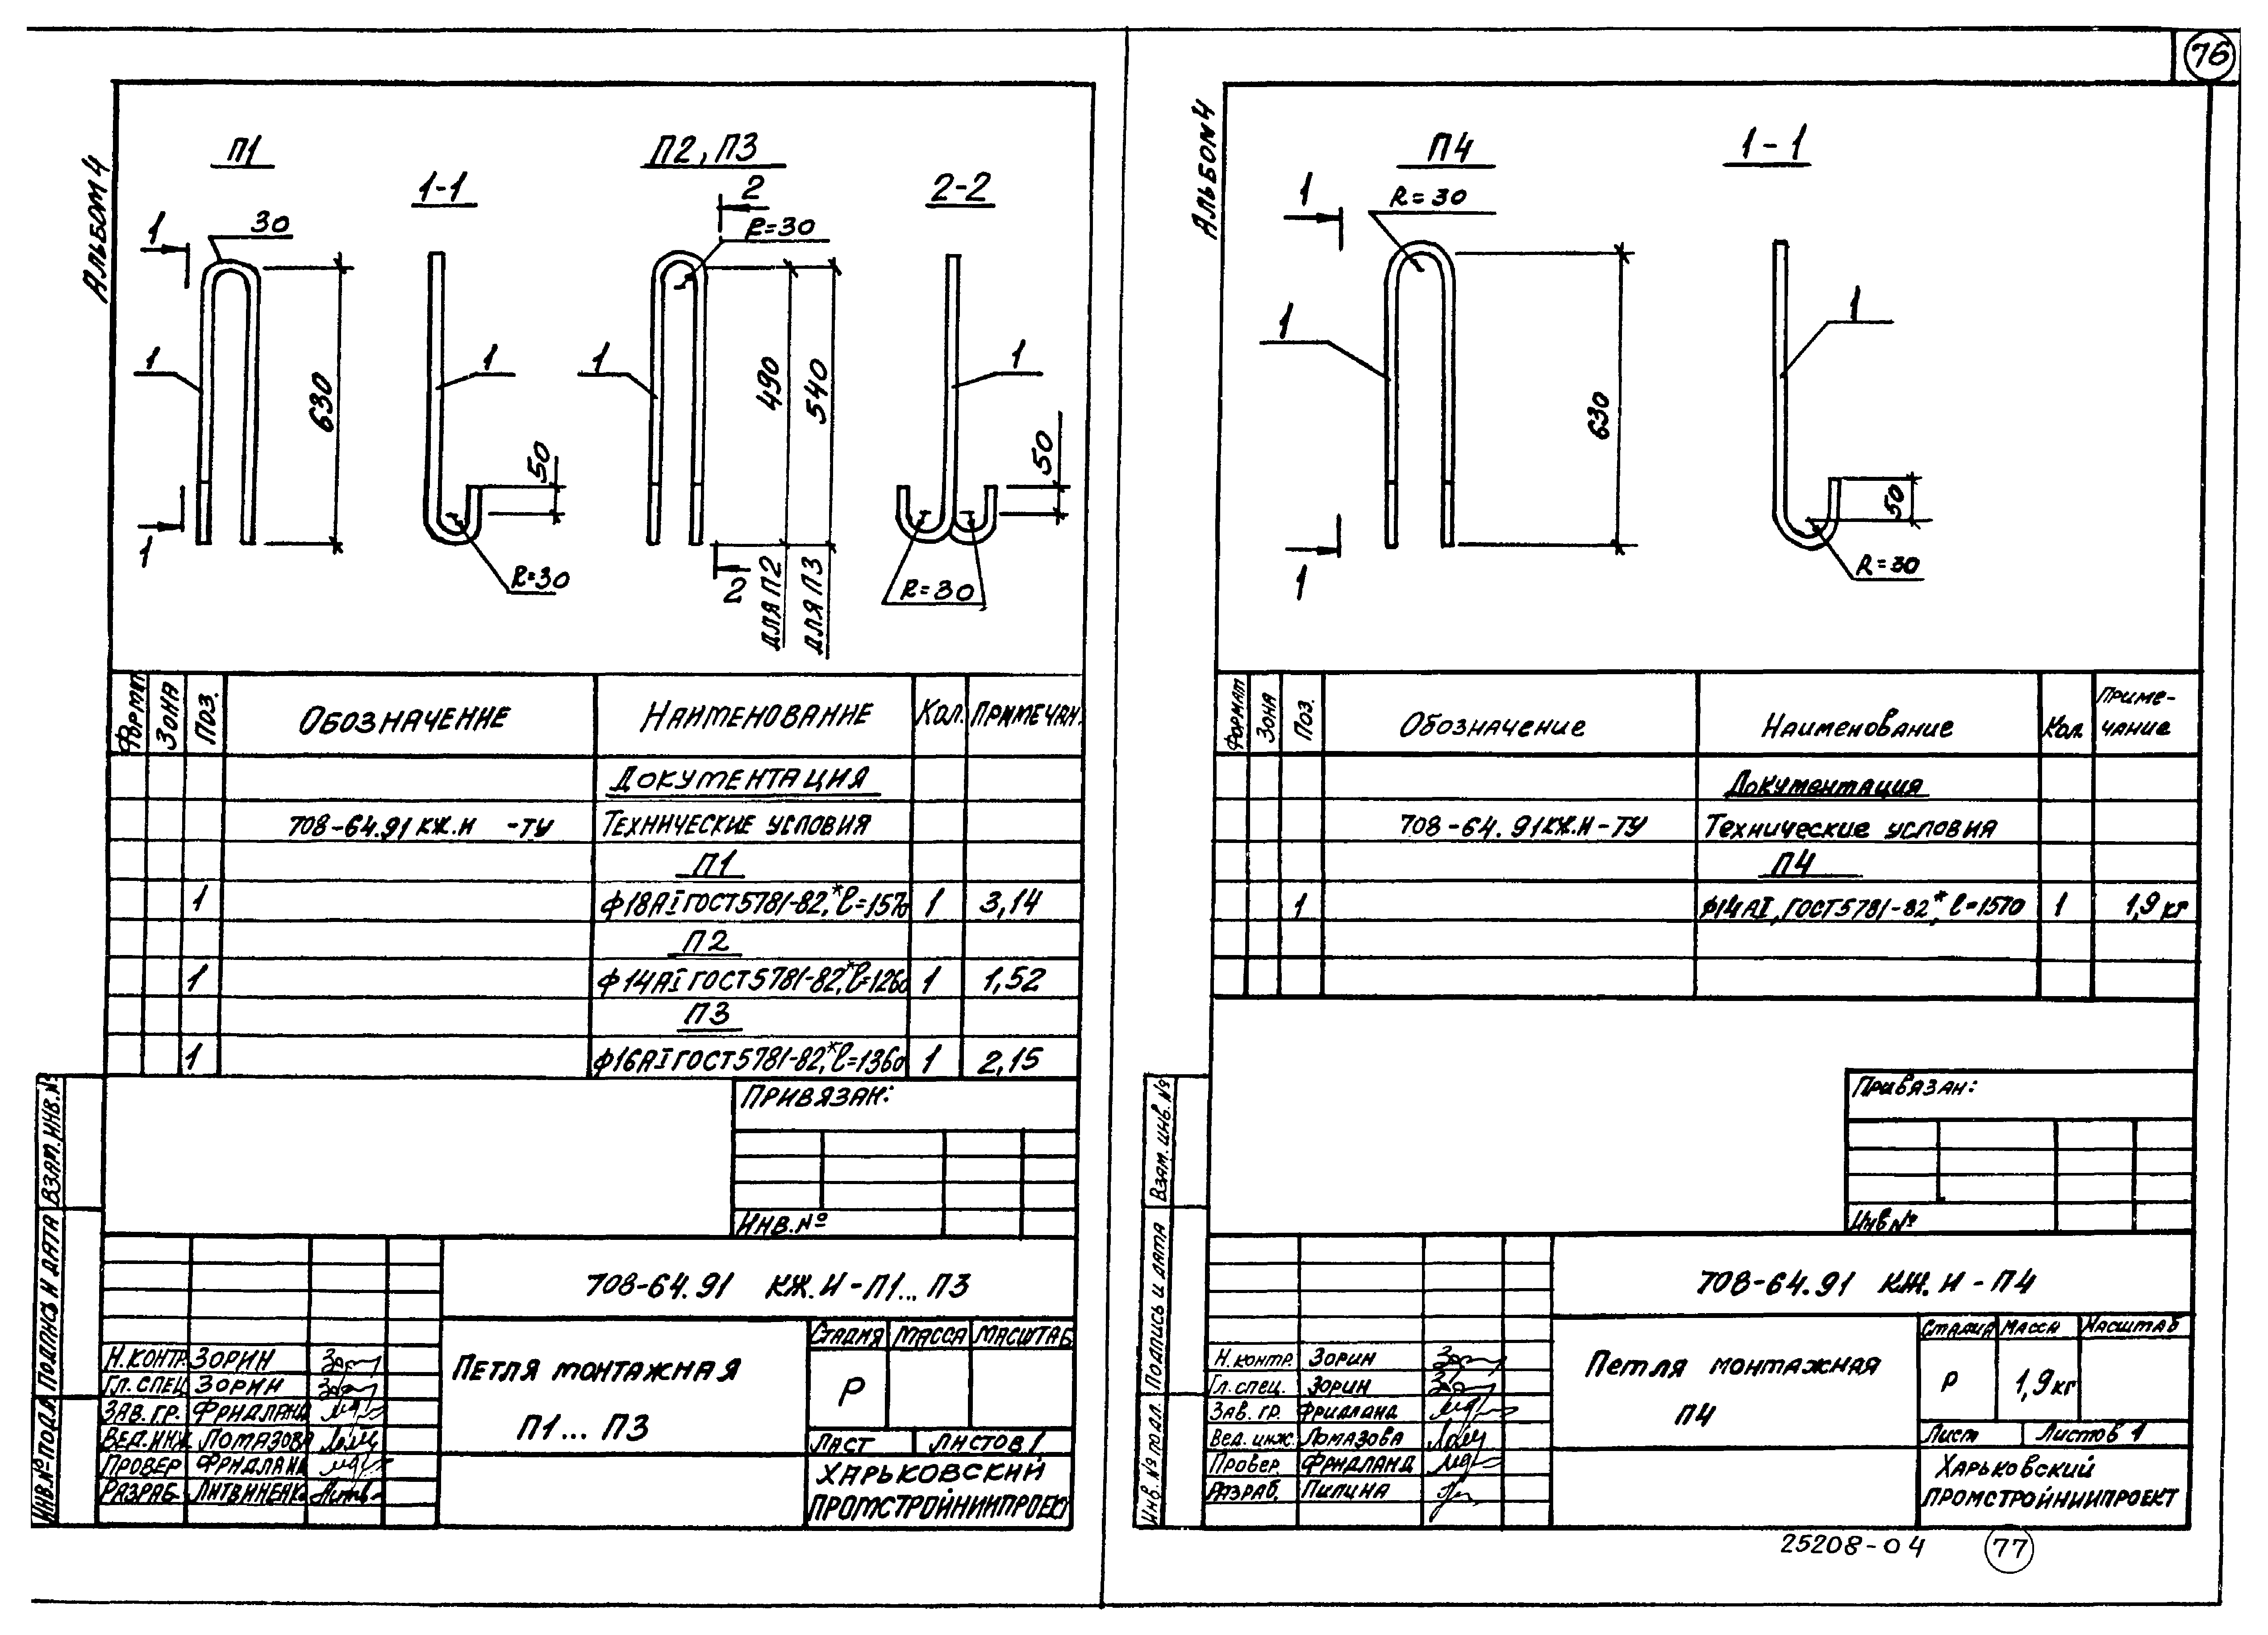 76
Альбом 4
П1
1-1
П2, П3
2-2
1
30
1
630
1
1
50
R=30
2
R=30
1
490
540
для П2
для П3
2
1
50
R=30
Формат Зона Поз. Обозначение Наименование Кол. Примечан.
Документация
708-64.91 КЖ.И -ТУ Технические условия
П1
1 ф18АI ГОСТ 5781-82,* ℓ=1570 1 3,14
П2
1 ф14АI ГОСТ 5781-82,* ℓ=1260 1 1,52
П3
1 ф16АI ГОСТ 5781-82,* ℓ=1360 1 2,15
Привязан:
Инв.№
Взам. инв. №
Подпись и дата
Инв.№подл
708-64.91 КЖ.И-П1... П3
Н.контр. Зорин
Гл. спец Зорин
Зав. гр. Фридланд
Вед. инж Ломазова
Провер Фридланд
Разраб.
Петля монтажная
П1... П3
Стадия Масса Масштаб
Р
Лист Листов 1
Харьковский
Промстройниипроект
Альбом 4
П4
1-1
1
R=30
1
630
1
1
50
R=30
Формат Зона Поз. Обозначение Наименование Кол. Приме-
чание
Документация
708-64.91 КЖ.И-ТУ Технические условия
П4
1 ф14АI, ГОСТ 5781-82,* ℓ=1570 1 1,9 кг
Привязан:
Инв №
Взам. инв. №
Подпись и дата
Инв. № подл.
708-64.91 КЖ.И-П4
Н.контр. Зорин
Гл. спец. Зорин
Зав. гр. Фридланд
Вед. инж. Ломазова
Провер. Фридланд
Разраб. Пилина
Петля монтажная
П4
Стадия Масса Масштаб
Р 1,9 кг
Лист Листов 1
Харьковский
Промстройниипроект
25208-04 77